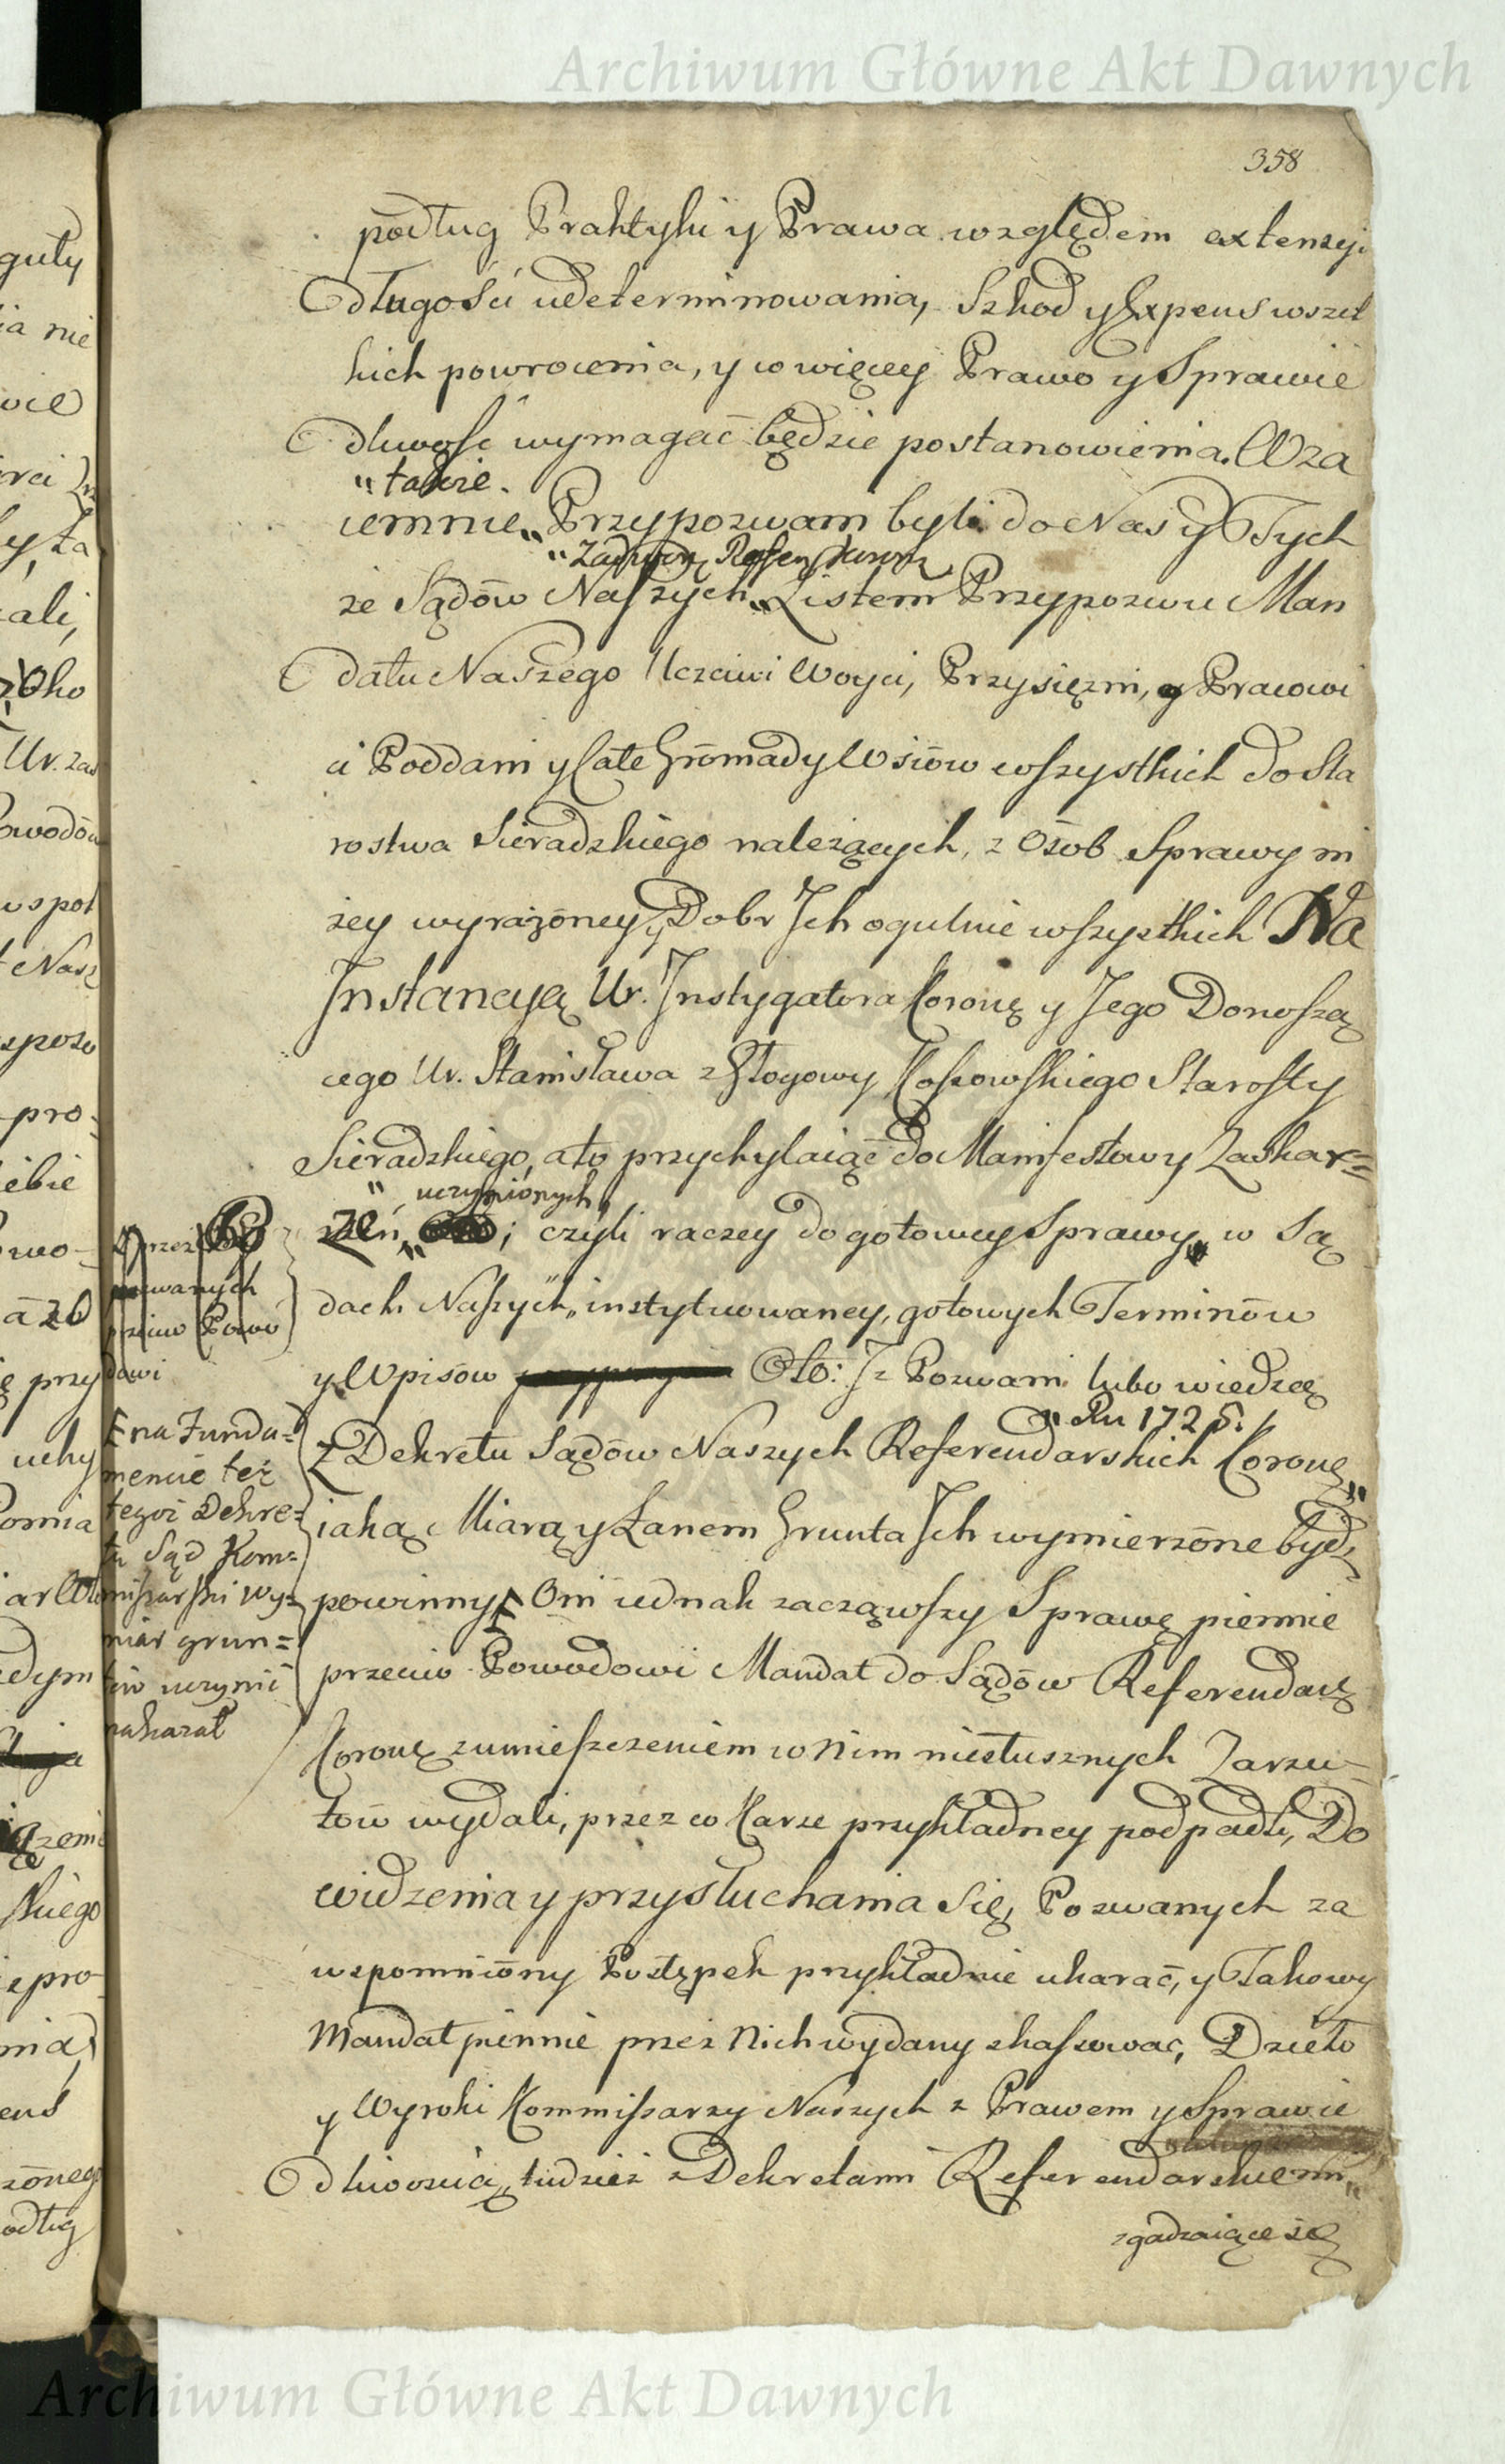 Archiwum Główne Akt Dawnych
358
podług Praktyki y Prawa względem extensyi
długości udeterminowania, Szkod y Expens wszel
kich powrocenia, y co więcey Prawo y Sprawie
dliwość wymagać będzie postanowienia. Wza
" także.
iemnie „ Przypozwani byli do Nas y Tych
" Zadwor. Referendarsk.
że Sądów Naszych „ Listem Przypozwu Man
datu Naszego Uczciwi Woyci, Przysiężni, y Pracowi
ci Poddani y Całe Gromady Wsiów wszystkich do Sta
rostwa Sieradzkiego należących, z Osob Sprawy ni
żey wyrażóney, y Dobr Ich ogulnie wszystkich Na
Instancyą Ur. Instygatora Koronę y Jego Donoszą
cego Ur. Stanisława z Głogowy Kossowskiego Starosty
Sieradzkiego, a to przychylaiąc do Manifestow y Zaskar=
" uczynionych
żeń „ ; czyli raczey do gotowey Sprawy „ w Są
dach Naszych „ instytuowaney, gotowych Terminów
y Wpisów Oto: Iż Pozwani lubo wiedzą
" Ru 1725.
z Dekretu Sądów Naszych Referendarskich Koronę "
iaką Miarą y Łanem Grunta Ich wymierzóne bydź
powinny Oni iednak zacząwszy Sprawę piennie
przeciw Powodowi Mandat do Sądów Referendarę
Koronę zumieszczeniem w Nim niesłusznych Zarzu-
tów wydali, przez co Karze przykładney podpadli, Do
widzenia y przysłuchania się, Pozwanych za
wspomnióny Postępek przykładnie ukarać, y Takowy
Mandat piennie przez Nich wydany skassować, Dzieło
y Wyroki Kommissarzy Naszych z Prawem y Sprawie
dliwością „ tudzież z Dekretami Referendarskiemi „
zgadzaiące się
przez
pozwanych
przeciw Powo
dowi
na Funda=
mencie też
tegoż Dekre=
tu Sąd Kom=
missarski Wy=
miar grun=
tów uczynić
nakazał
Archiwum Główne Akt Dawnych